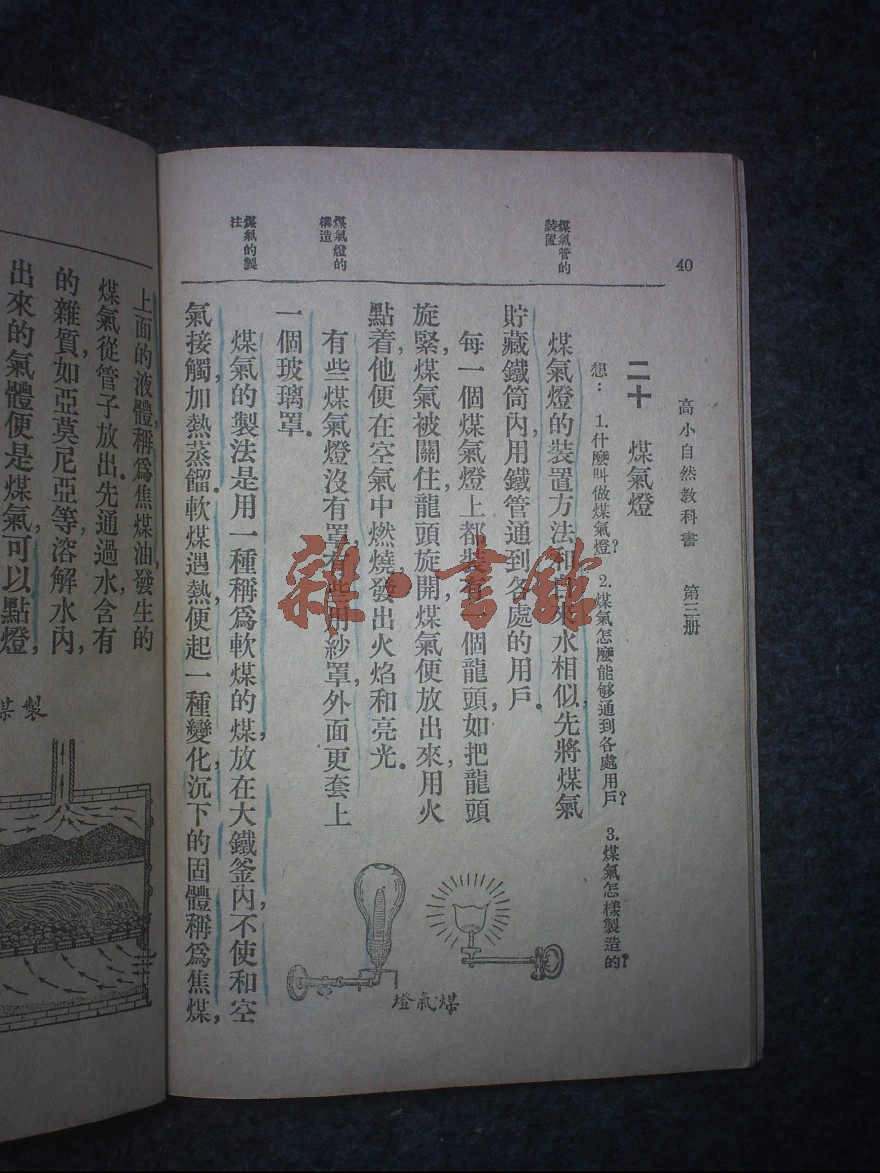 40
高小自然教科書　第三册
二十　煤氣燈
想：1.什麽叫做煤氣燈？2.煤氣怎麽能够通到各處用戶？3.煤氣怎樣製造的？
煤氣管的
裝置
煤氣燈的裝置方法和自來水相似，先將煤氣
貯藏鐵筒內，用鐵管通到各處的用戶。
每一個煤氣燈上都裝有一個龍頭，如把龍頭
旋緊，煤氣被關住，龍頭旋開，煤氣便放出來，用火
點着，他便在空氣中燃燒，發出火焰和亮光。
煤氣燈的
構造
有些煤氣燈沒有罩，有些用紗罩，外面更套上
一個玻璃罩。
煤氣的製
法
煤氣的製法是用一種稱爲軟煤的煤，放在大鐵釜內，不使和空
氣接觸，加熱蒸餾，軟煤遇熱，便起一種變化，沉下的固體稱爲焦煤，
煤氣燈
上面的液體，稱爲焦煤油，發生的
煤氣從管子放出。先通過水，含有
的雜質如亞莫尼亞等，溶解水內，
出來的氣體便是煤氣，可以點燈，
製煤
雜·書館